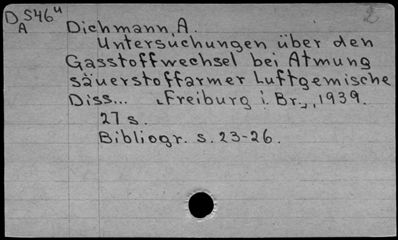 D S46u 2
A Dichmann, A.
Untersuchungen über den
Gasstoffwechsel bei Atmung
säuerstoffarmer Luftgemische
Diss... Freiburg i. Br., 1939.
27 s.
Bibliogr. s. 23-26.